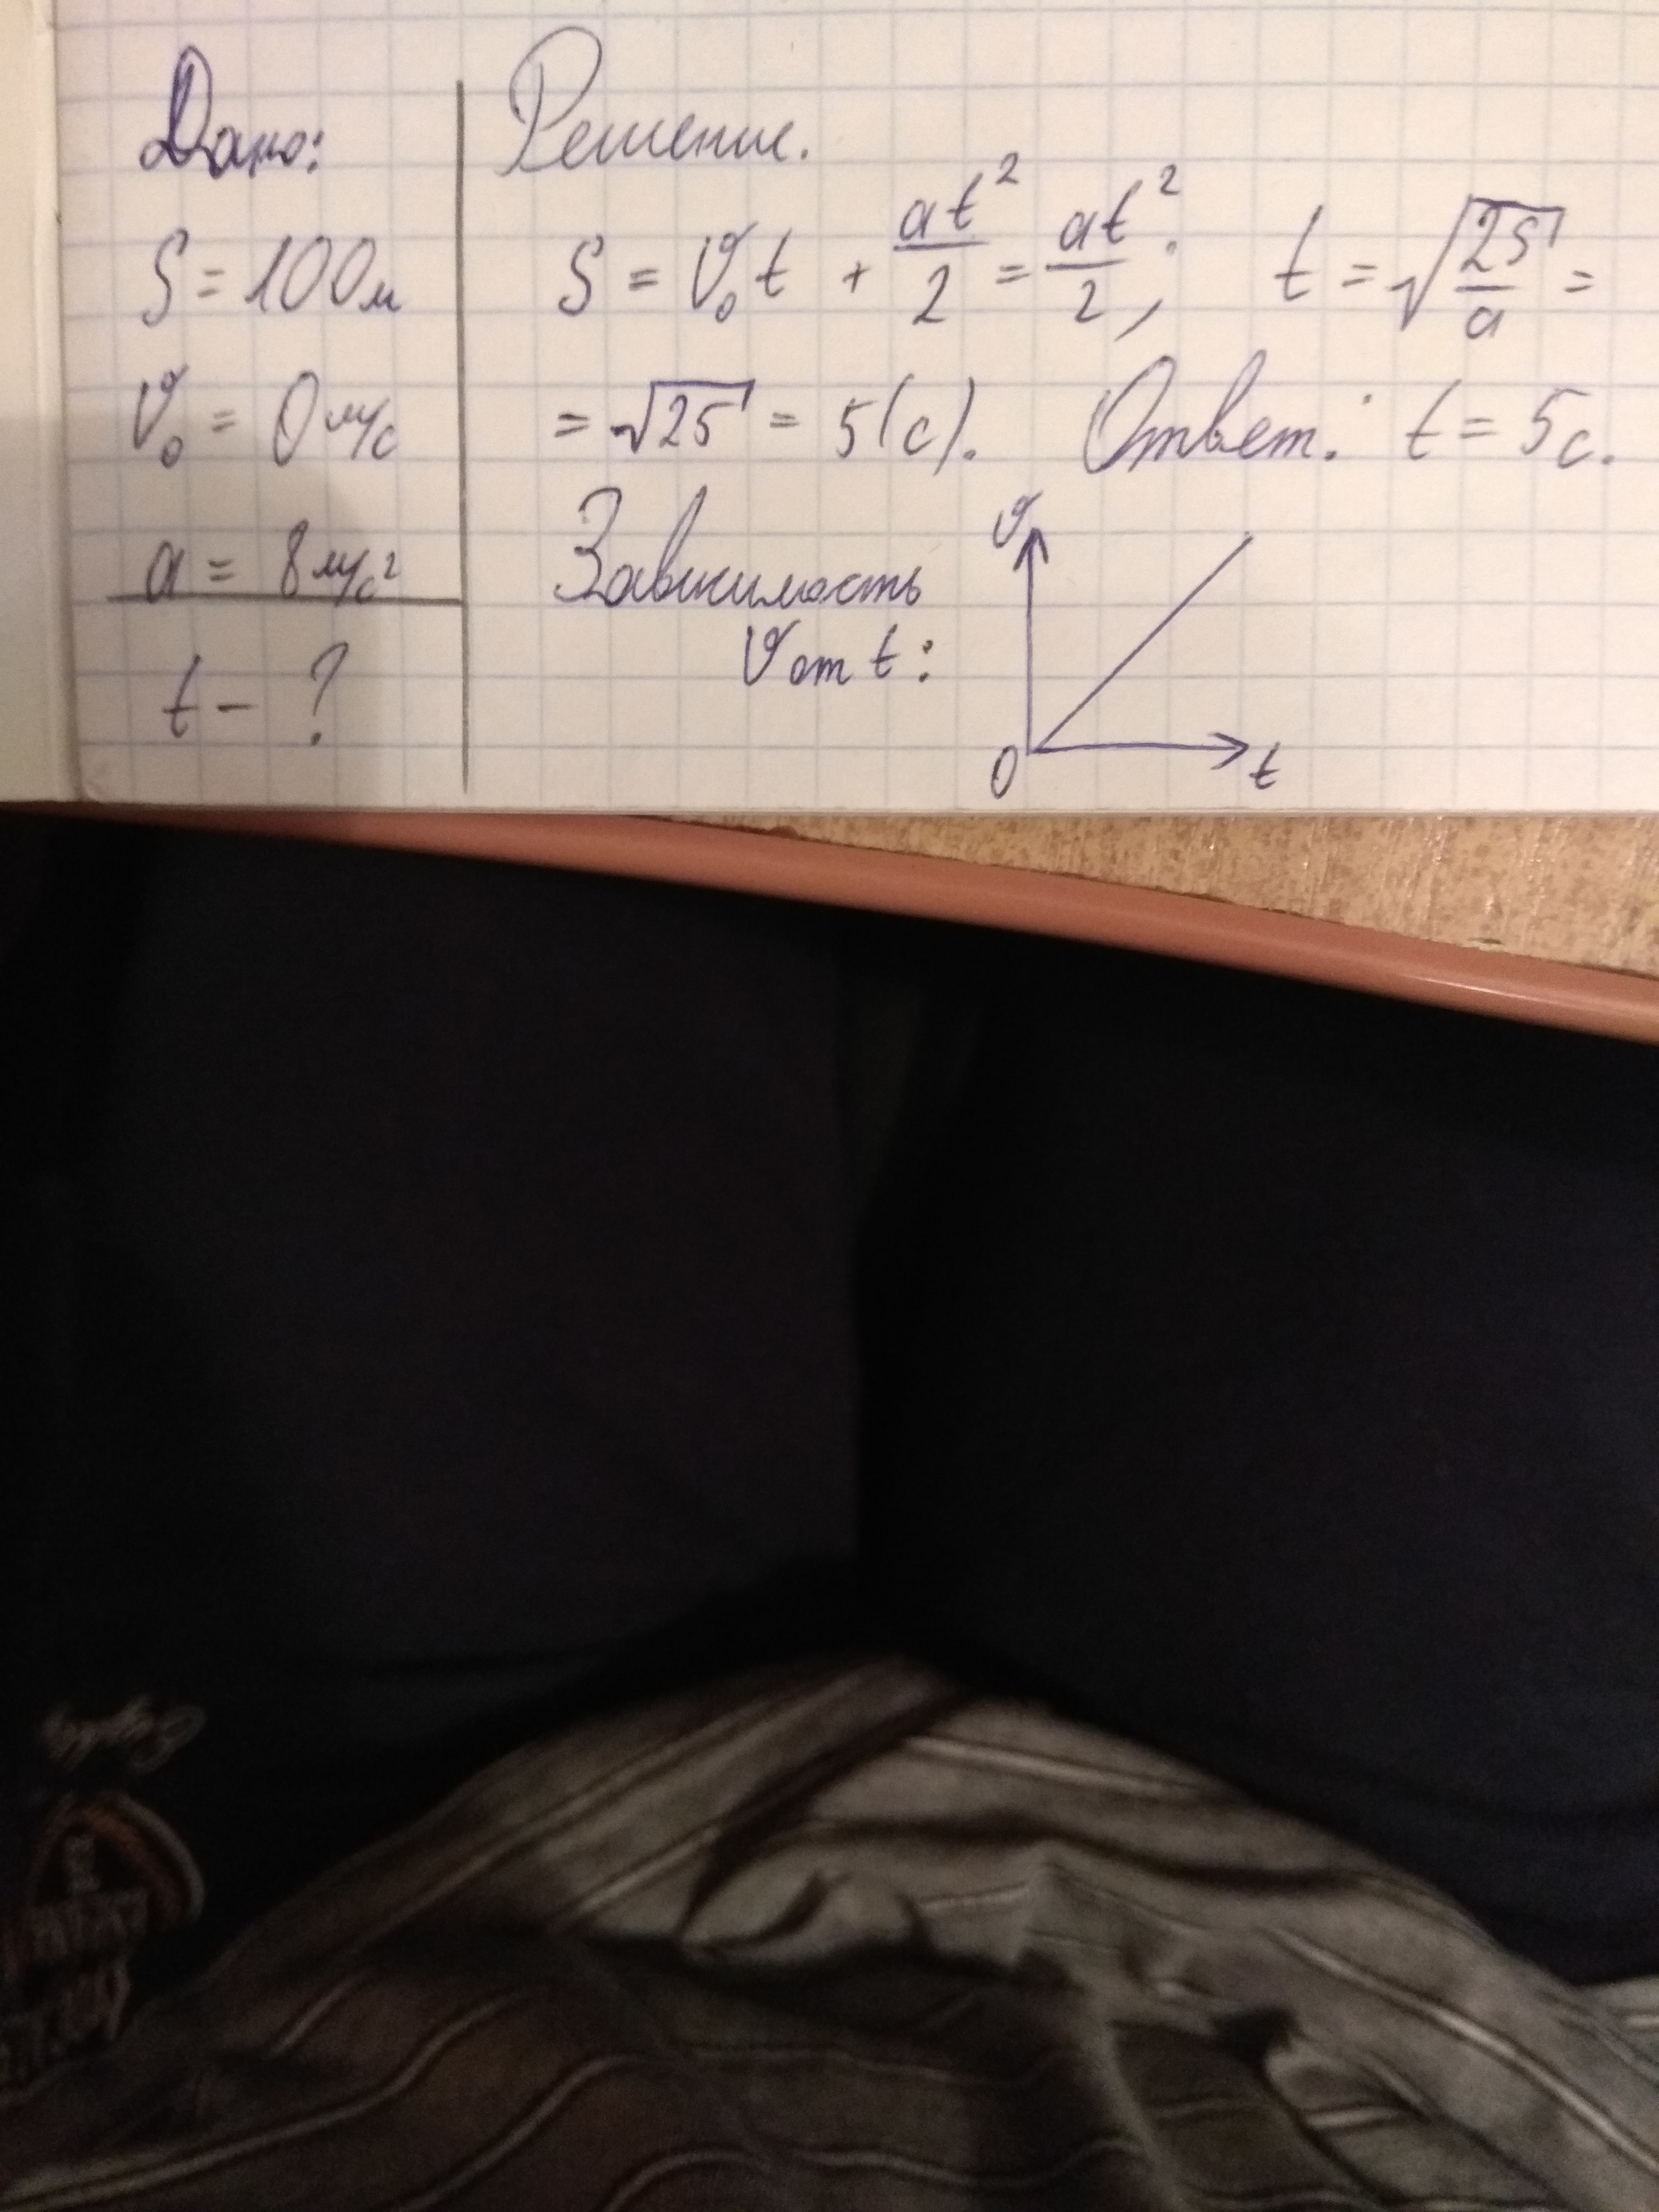 Дано:
S = 100м
V₀ = 0 м/с
a = 8 м/с²
t - ?
Решение.
S = V₀t + at²/2 = at²/2; t = √(2S/a) =
= √25 = 5(с). Ответ: t = 5с.
Зависимость
V от t:
V
0
t